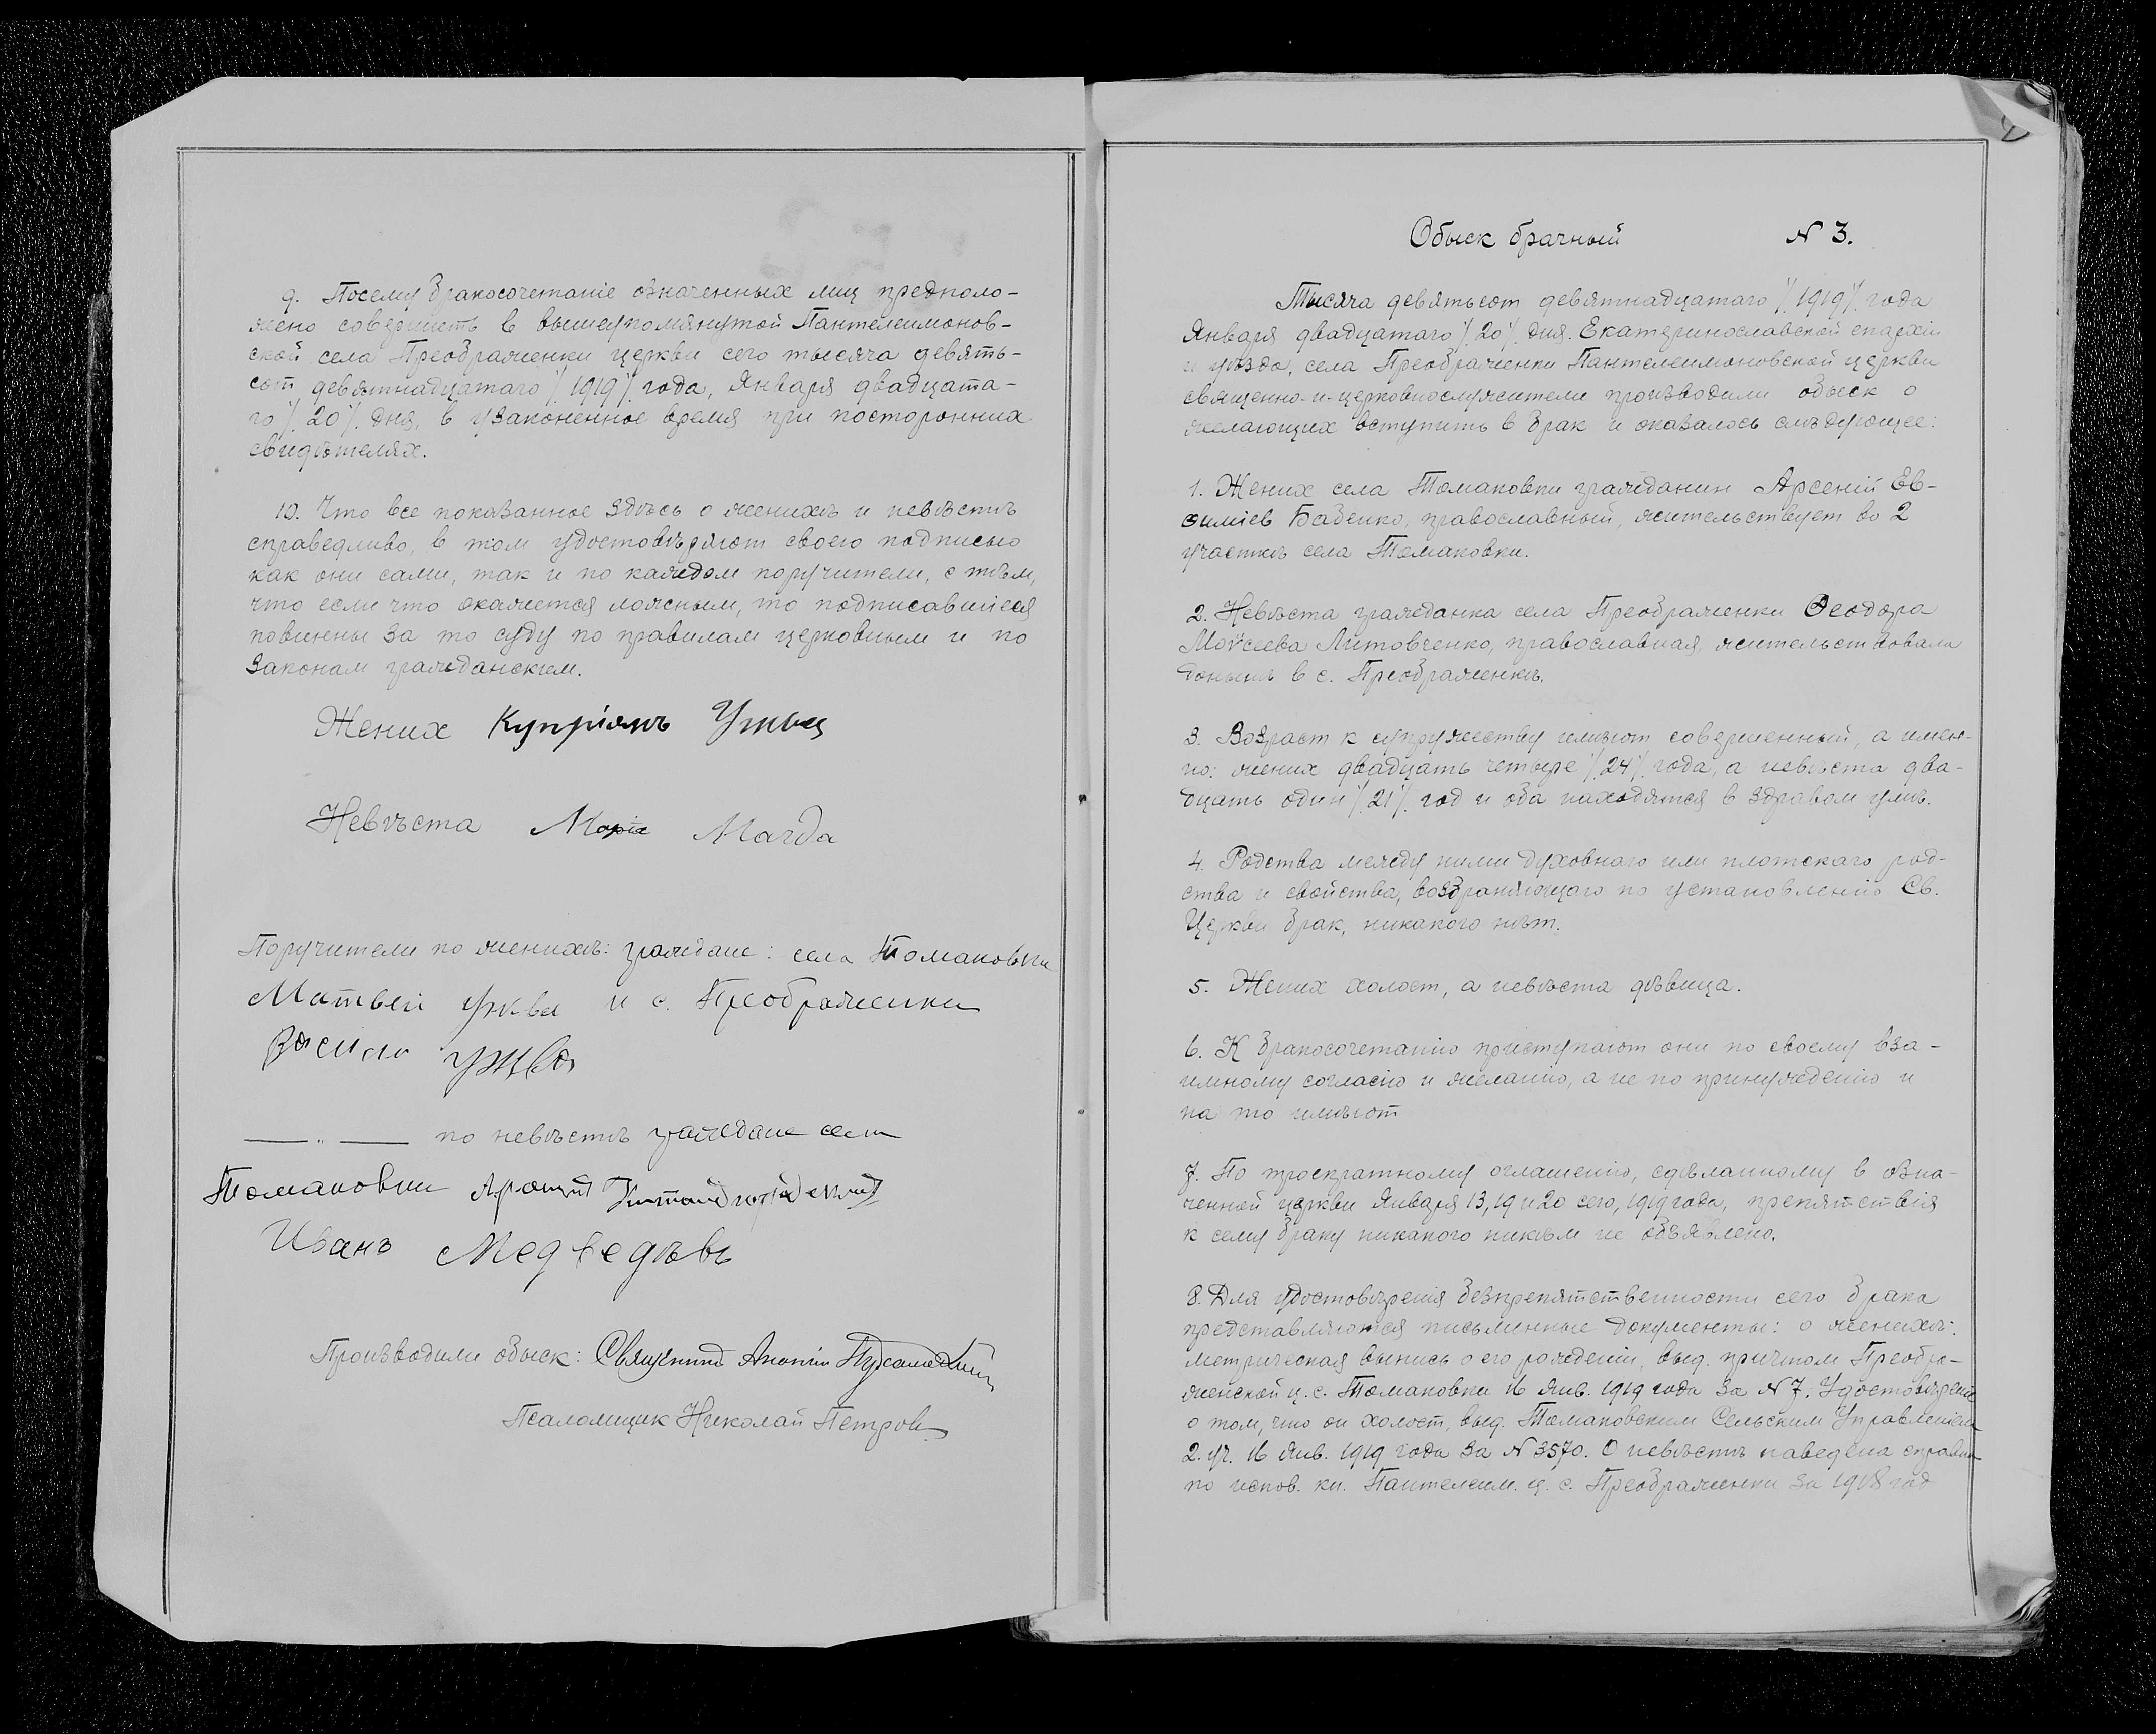 9. Посему бракосочетаніе означенных лиц предполо-
жено совершить в вышеупомянутой Пантелеимонов-
ской села Преображенки церкви сего тысяча девять-
сот девятнадцатаго /1919/. года, Января двадцата-
го /.20/. дня, в узаконенное время при посторонних
свидѣтелях.
10. Что все показанное здѣсь о женихѣ и невѣстѣ
справедливо, в том удостовѣряют своею подписью
как они сами, так и по каждом поручители, с тѣм,
что если что окажется ложным, то подписавшіеся
повинны за то суду по правилам церковным и по
законам гражданским.
Жених Купріянъ
Невѣста Марія Магда
Поручители по женихѣ: граждане: села Томаковки
Матвей Ужва и с. Преображенки
Василь Ужва
—„— по невѣстѣ граждане села
Томаковки
Иванъ Медведѣвъ
Производили обыск: Священник
Псаломщик Николай Петров
Обыск брачный N 3.
Тысяча девятьсот девятнадцатаго /.1919/. года
Января двадцатаго /.20/. дня. Екатеринославской епархіи
и уѣзда, села Преображенки Пантелеимоновской церкви
священно-и-церковнослужители производили обыск о
желающих вступить в брак и оказалось слѣдующее:
1. Жених села Томаковки гражданин Арсеній Ев-
ѳиміев Бабенко, православный, жительствует во 2
участкѣ села Томаковки.
2. Невѣста гражданка села Преображенки Ѳеодора
Моѵсеева Литовченко, православная, жительствовала
донынѣ в с. Преображенкѣ.
3. Возраст к супружеству имѣют совершенный, а имен-
но: жених двадцать четыре /.24/. года, а невѣста два-
дцать один /.21/. год и оба находятся в здравом умѣ.
4. Родства между ними духовнаго или плотскаго род-
ства и свойства, возбраняющаго по установленію Св.
Церкви брак, никакого нѣт.
5. Жених холост, а невѣста дѣвица.
6. К бракосочетанію приступают они по своему вза-
имному согласію и желанію, а не по принужденію и
на то имѣют
7. По троекратному оглашенію, сдѣланному в озна-
ченной церкви Января 13, 19 и 20 сего, 1919 года, препятствія
к сему браку никакого никѣм не объявлено.
8. Для удостовѣренія безпрепятственности сего брака
представляются письменные документы: о женихѣ:
метрическая выпись о его рожденіи, выд. причтом Преобра-
женской ц. с. Томаковки 16 янв. 1919 года за N 7. Удостовѣреніе
о том, что он холост, выд. Томаковским Сельским Управленіем
2. уч. 16 янв. 1919 года за N 3570. О невѣстѣ наведена справка
по испов. кн. Пантелеим. ц. с. Преображенки за 1918 год